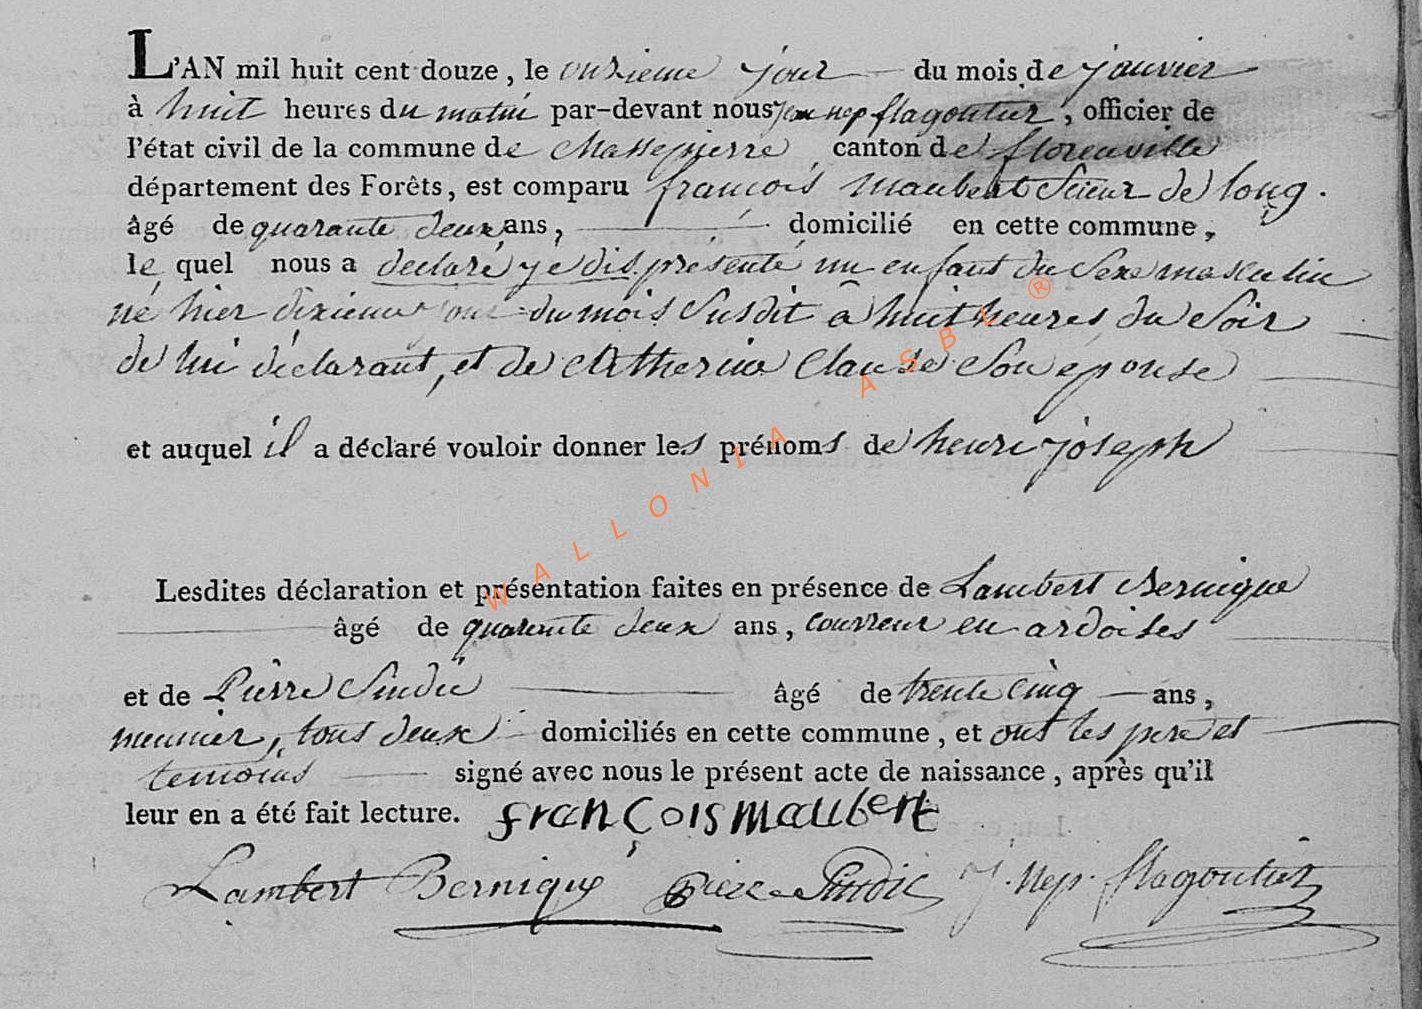 L'AN mil huit cent douze, le onzieme jour du mois de janvier
à huit heures du matin par-devant nous jean nep flagontier, officier de
l'état civil de la commune de Chassepierre canton de florenville
département des Forêts, est comparu francois maubert Scieur de long.
âgé de quarante deux ans, domicilié en cette commune,
le quel nous a declaré y e dis. presente un enfant du Sexe masculin
né hier dixieme jour du mois Susdit â huit heures du Soir
de lui déclarant, et de Catherine Clause Son épouse
et auquel il a déclaré vouloir donner les prénoms de henri joseph
Lesdites déclaration et présentation faites en présence de Lambert Bernique
âgé de quarente deux ans, couvreur en ardoises
et de Pierre Sindic âgé de trente Cinq ans,
meunier, tous deux domiciliés en cette commune, et ont les pere et
temoins signé avec nous le présent acte de naissance, après qu'il
leur en a été fait lecture. françois maubert
Lambert Bernique Piere Sindic J. Nep. flagontier
WALLONIA ASBL ®